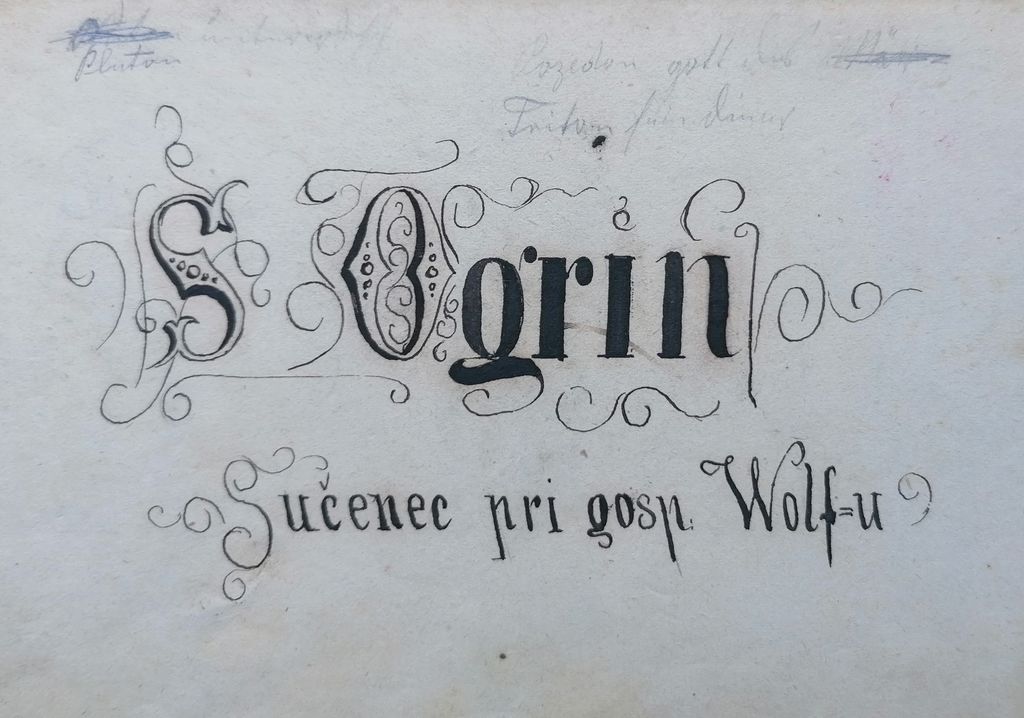 Pluton
Pozedon gott des
Triton sein diner
S Ogrin
Sučenec pri gosp. Wolf=u